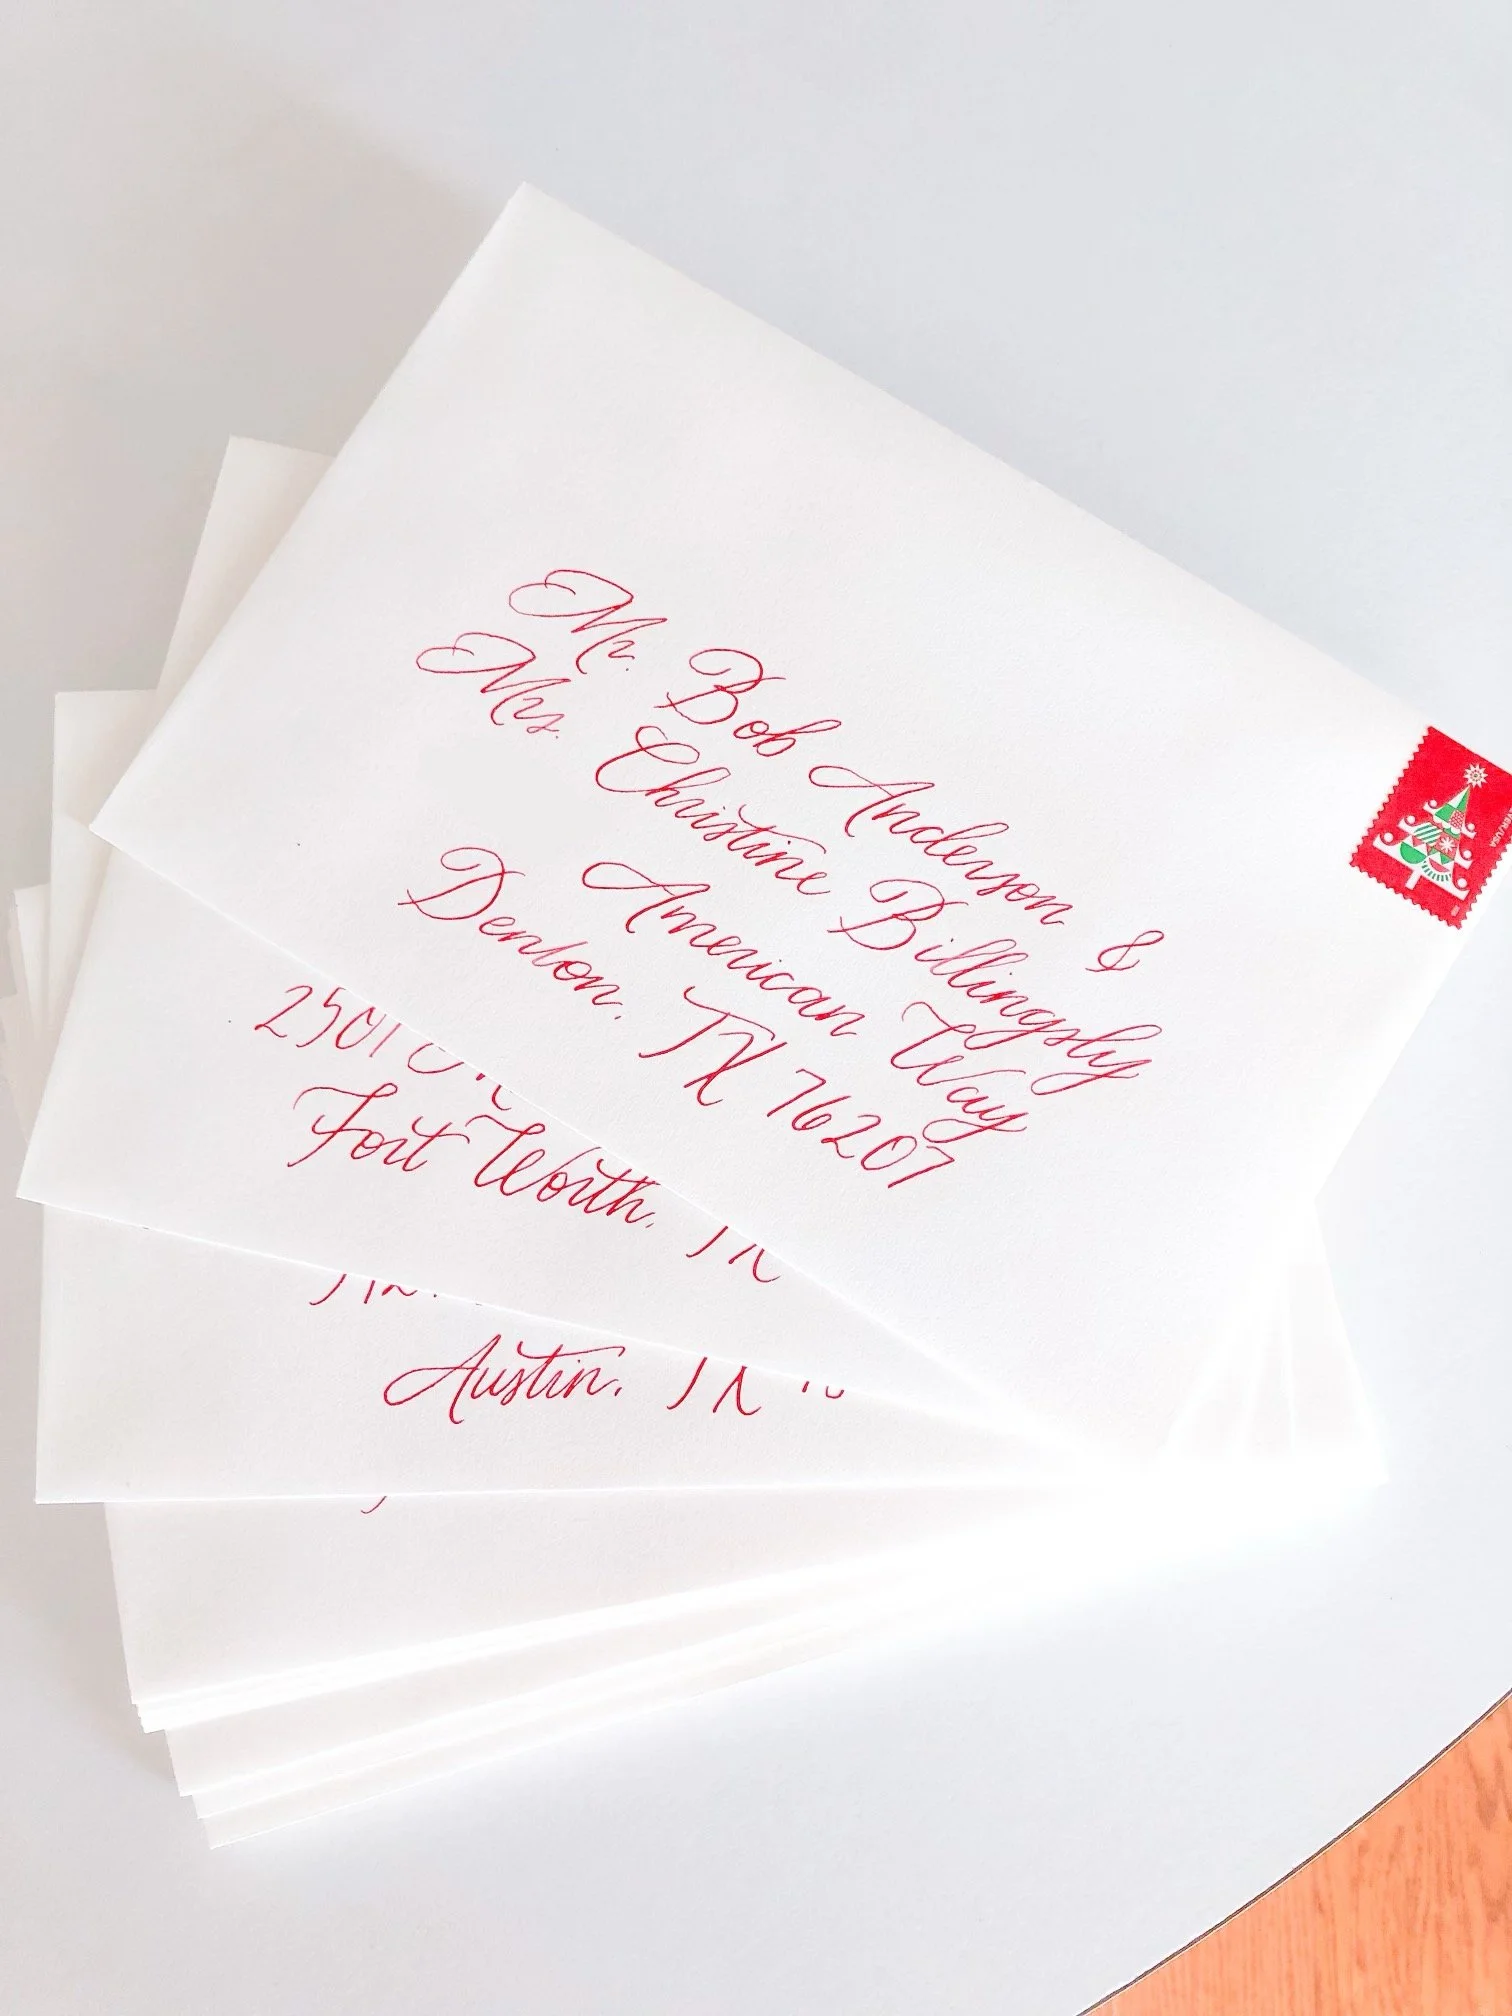 Mr. Bob Anderson &
Mrs. Christine Billingsly
American Way
Denton, TX 76207
2501
Fort Worth, TX
Austin, TX